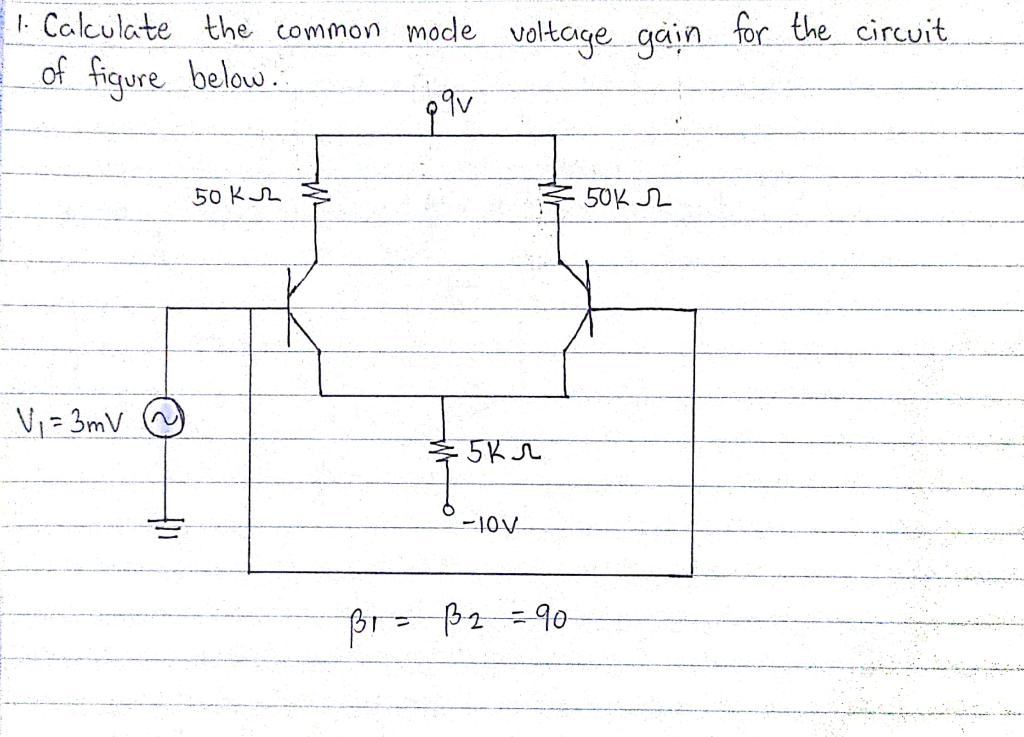 1. Calculate the common mode voltage gain for the circuit
of figure below.
9V
50KΩ
50KΩ
V₁=3mV
5KΩ
-10V
β1 = β2 = 90